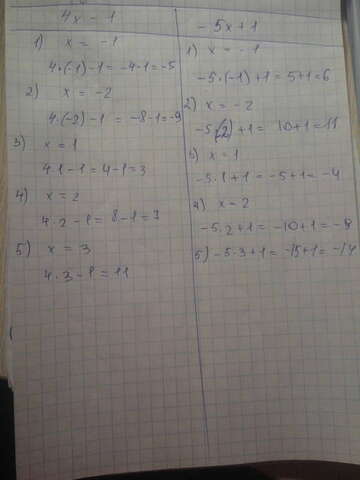 4x - 1
1) x = -1
4·(-1)-1=-4-1=-5
2) x = -2
4·(-2)-1 = -8-1=-9
3) x = 1
4·1-1=4-1=3
4) x = 2
4·2-1=8-1=3
5) x = 3
4·3-1=11
-5x+1
1) x = -1
-5·(-1)+1=5+1=6
2) x = -2
-5(-2)+1= 10+1=11
3) x = 1
-5·1+1=-5+1=-4
4) x = 2
-5·2+1=-10+1=-9
5) -5·3+1=-15+1=-14